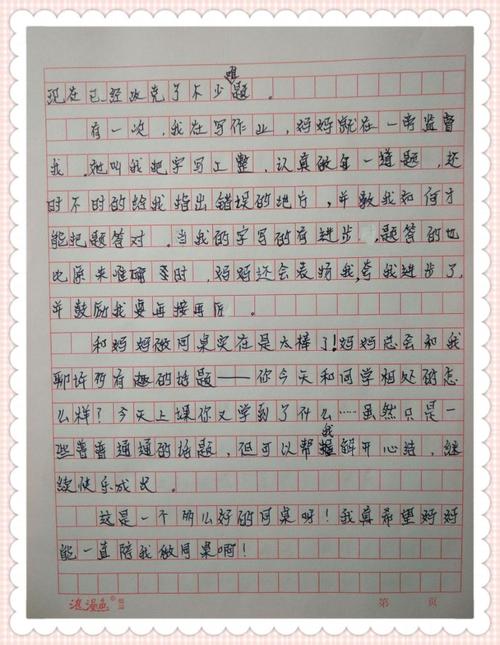 难
现在已经攻克了不少题。
有一次,我在写作业,妈妈就在一旁监督
我。她叫我把字写工整,认真做每一道题,还
时不时的给我指出错误的地方,并教我如何才
能把题答对。当我的字写的有进步,题答的也
比原来准确多时,妈妈还会表扬我,夸我进步了,
并鼓励我要再接再厉。
和妈妈做同桌实在是太棒了!妈妈总会和我
聊许多有趣的话题——你今天和同学相处的怎
么样?今天上课你又学到了什么……虽然只是一
我
些普普通通的话题,但可以帮解开心结,继
续快乐成长。
这是一个多么好的同桌呀!我真希望妈妈
能一直陪我做同桌啊!
浪漫鱼
第 页